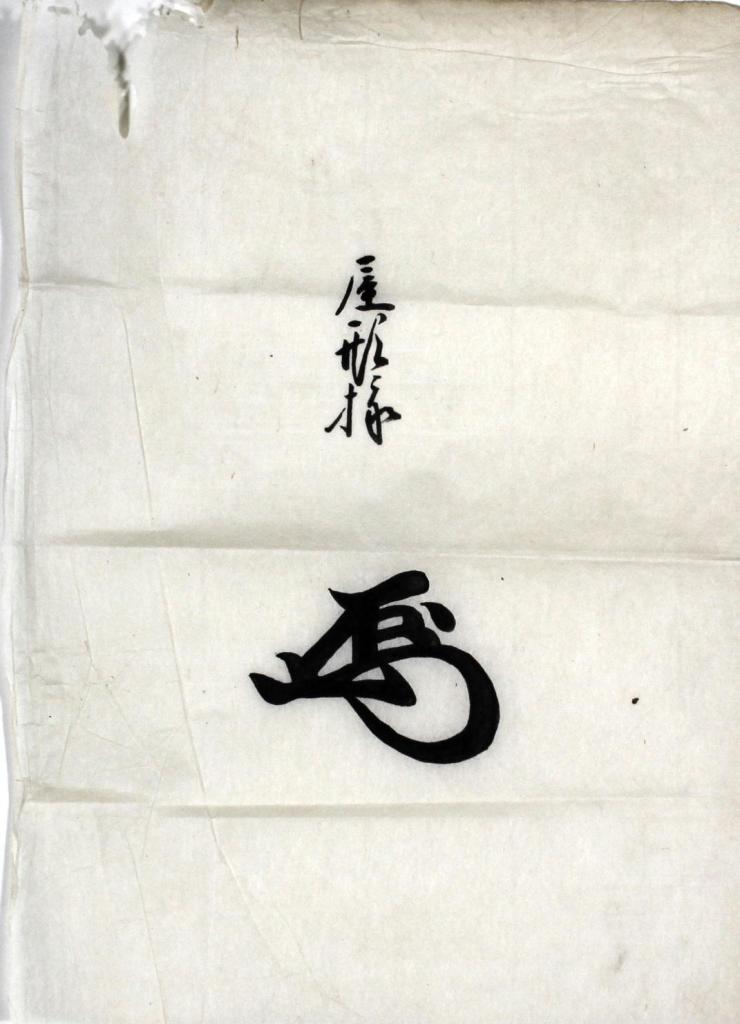 屋形様